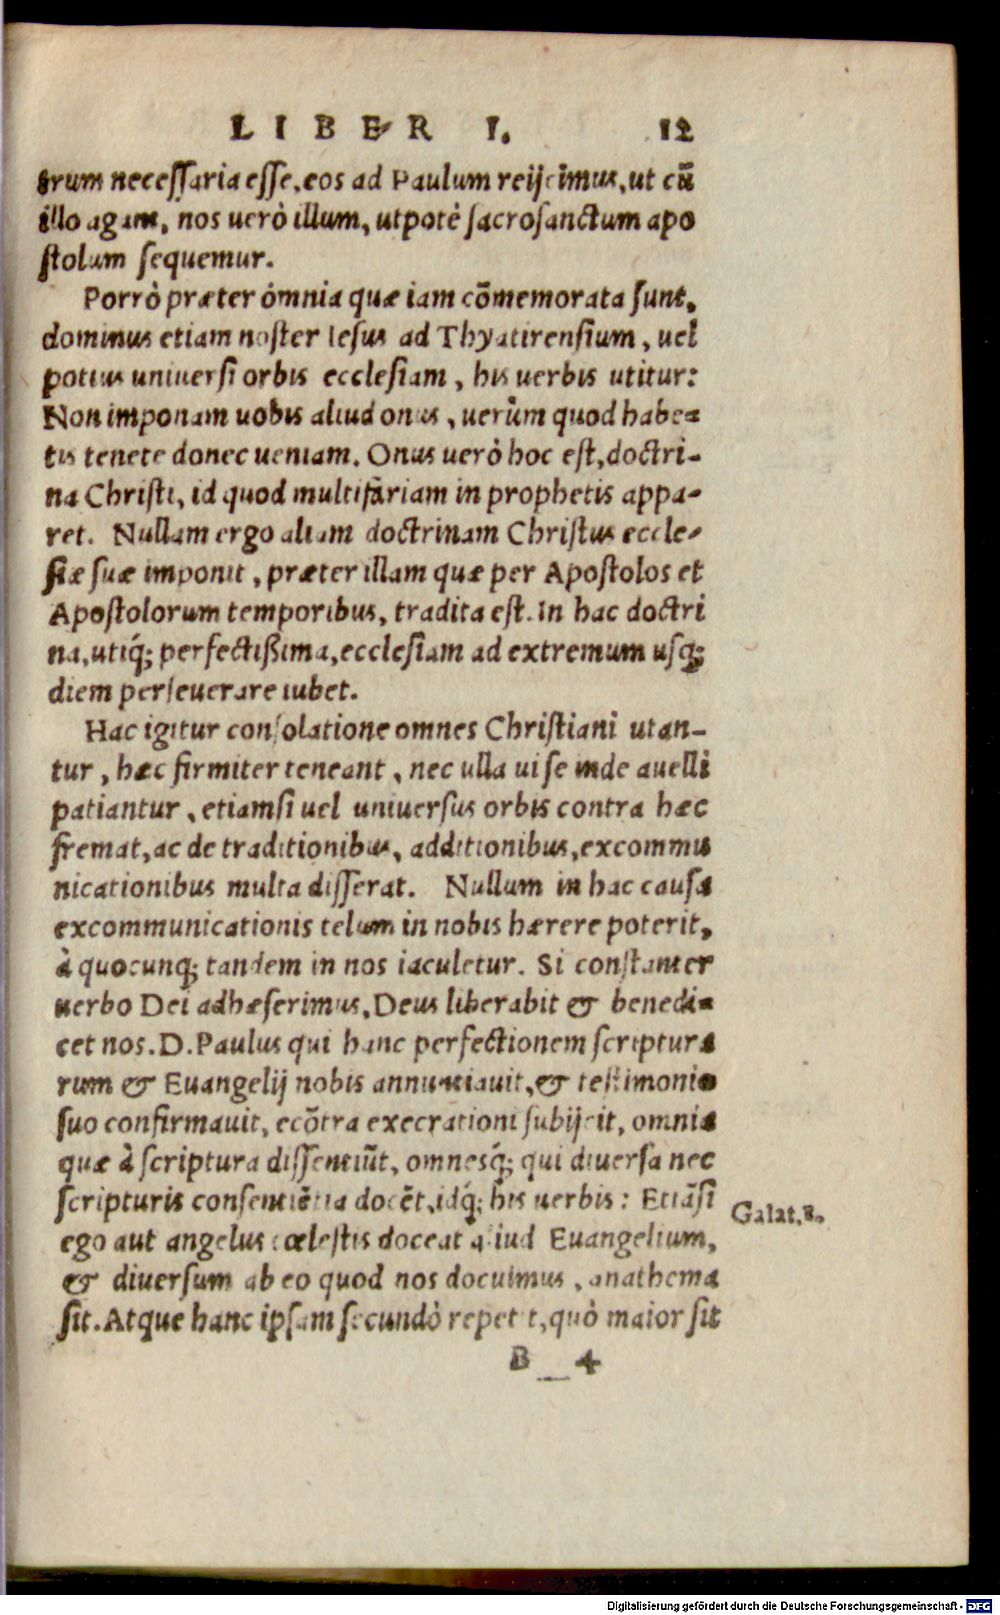 LIBER I. 12
orum necessaria esse, eos ad Paulum reijcimus, ut cū
illo agam, nos uerò illum, utpotè sacrosanctum apo
stolum sequemur.
Porrò præter omnia quæ iam cōmemorata sunt,
dominus etiam noster Iesus ad Thyatirensium, uel
potius uniuersi orbis ecclesiam, his uerbis utitur:
Non imponam uobis aliud onus, uerùm quod habe-
tis tenete donec ueniam. Onus uerò hoc est, doctri-
na Christi, id quod multifariam in prophetis appa-
ret. Nullam ergo aliam doctrinam Christus eccle-
siæ suæ imponit, præter illam quæ per Apostolos et
Apostolorum temporibus, tradita est. In hac doctri
na, utiq́; perfectißima, ecclesiam ad extremum usq;
diem perseuerare iubet.
Hac igitur consolatione omnes Christiani utan-
tur, hæc firmiter teneant, nec ulla ui se inde auelli
patiantur, etiamsi uel uniuersus orbis contra hæc
fremat, ac de traditionibus, additionibus, excommu
nicationibus multa disserat. Nullum in hac causa
excommunicationis telum in nobis hærere poterit,
à quocunq; tandem in nos iaculetur. Si constanter
uerbo Dei adhæserimus, Deus liberabit & benedi-
cet nos. D. Paulus qui hanc perfectionem scriptura
rum & Euangelij nobis annunciauit, & testimonio
suo confirmauit, ecōtra execrationi subijcit, omnia
quæ à scriptura dissentiūt, omnesq́; qui diuersa nec
scripturis consentiētia docēt, idq́; his uerbis: Etiāsi
ego aut angelus cœlestis doceat aliud Euangelium,
& diuersum ab eo quod nos docuimus, anathema
sit. Atque hanc ipsam secundò repetit, quò maior sit
Galat. 1.
B 4
Digitalisierung gefördert durch die Deutsche Forschungsgemeinschaft - DFG